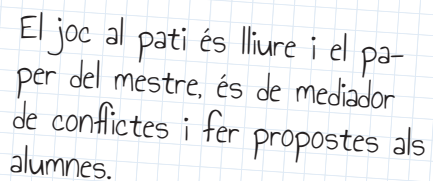 El joc al pati és lliure i el pa-
per del mestre, és de mediador
de conflictes i fer propostes als
alumnes.